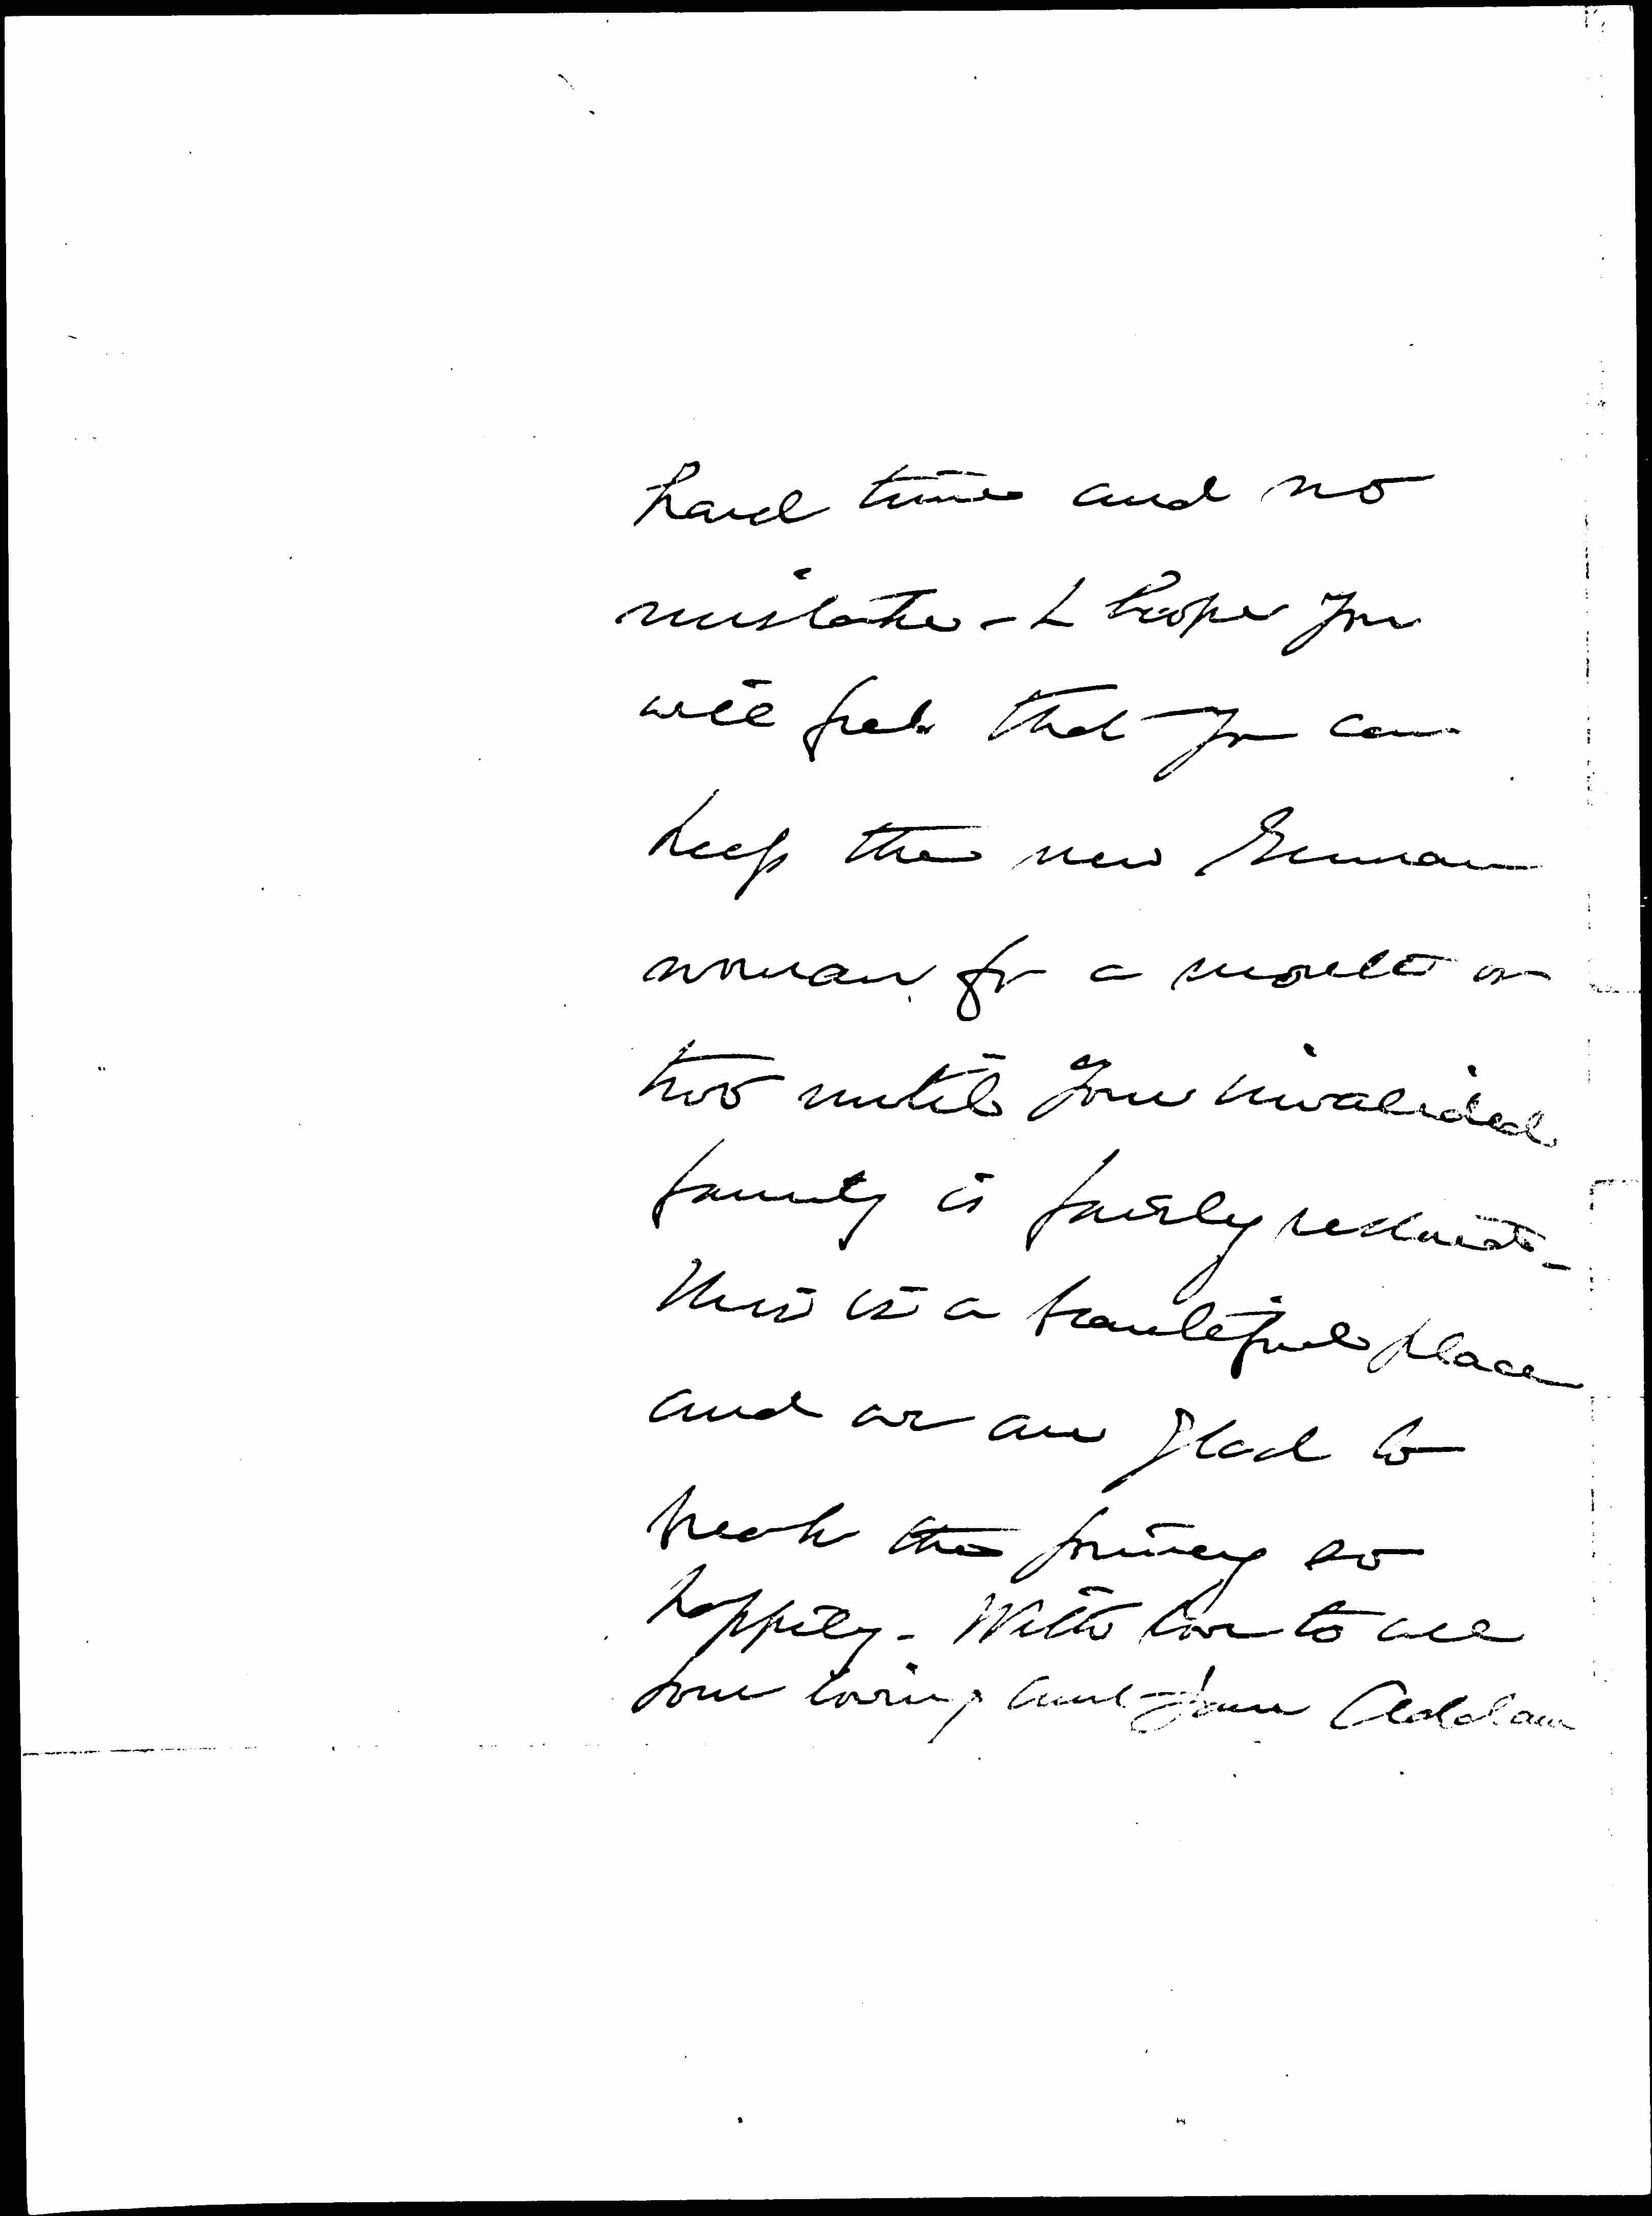 hard time and no
mistake - I hope you
will feel that you can
keep the new German
woman for a month or
two until your invalided
family is fairly
This is a beautiful place
and we are glad to
break the journey so
happily - With love to all
your loving aunt Jane Addams